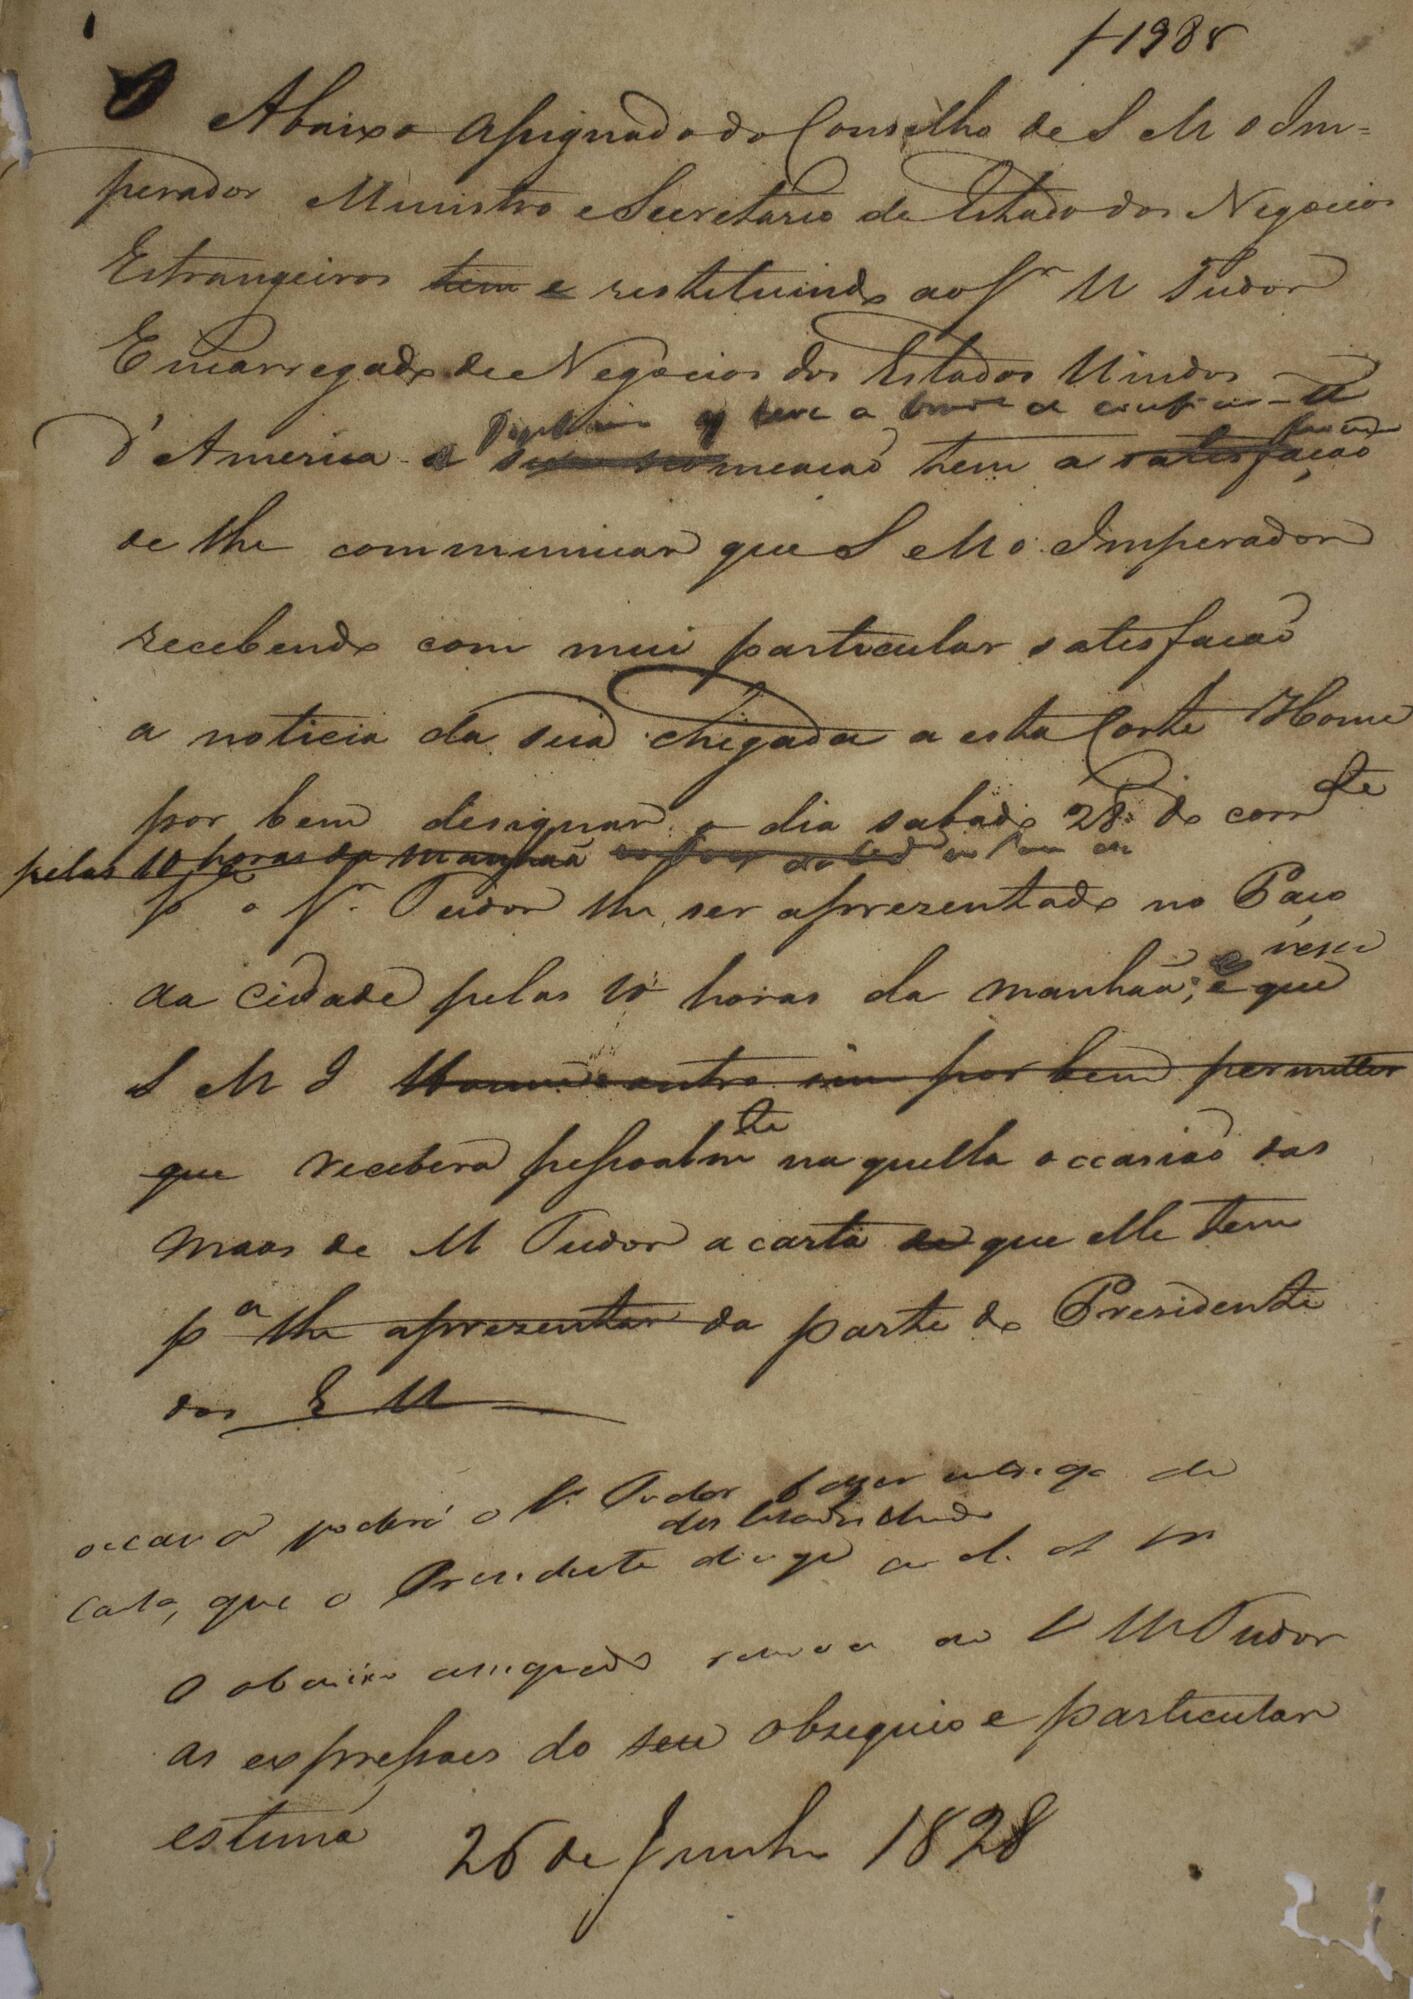 1988
O Abaixo Assignado do Conselho de S M o Im=
perador Ministro e Secretario de Estado dos Negocios
Estrangeiros tem e restituindo ao Sr M Tudor
Encarregado de Negocios dos Estados Unidos
q teve a
d'America a nomeacaõ tem a satisfaçaõ
de lhe communicar que S M o Imperador
recebendo com mui particular satisfacaõ
a noticia da sua chegada a esta Corte Houve
por bem designar o dia sabado 28 do corrte
pelas 10 horas da manhaã
pª o Sr Tudor lhe ser aprezentado no Paço
nessa
da cidade pelas 10 horas da manhaã; e que
S M I Houve outro sim por bem permitter
que receberá pessoalmte naquella occasiaõ das
maos de M Tudor a carta de que elle tem
pª lhe aprezentar da parte do Presidente
dos E U
occasiaõ poderá o Sr Tudor fazer entrega da
dos Estados Unidos
Carta, que o Presidente dirige a S. M
O abaixo assignado renova ao S M Tudor
as expressoes do seu obzequio e particular
estima 26 de Junho 1828